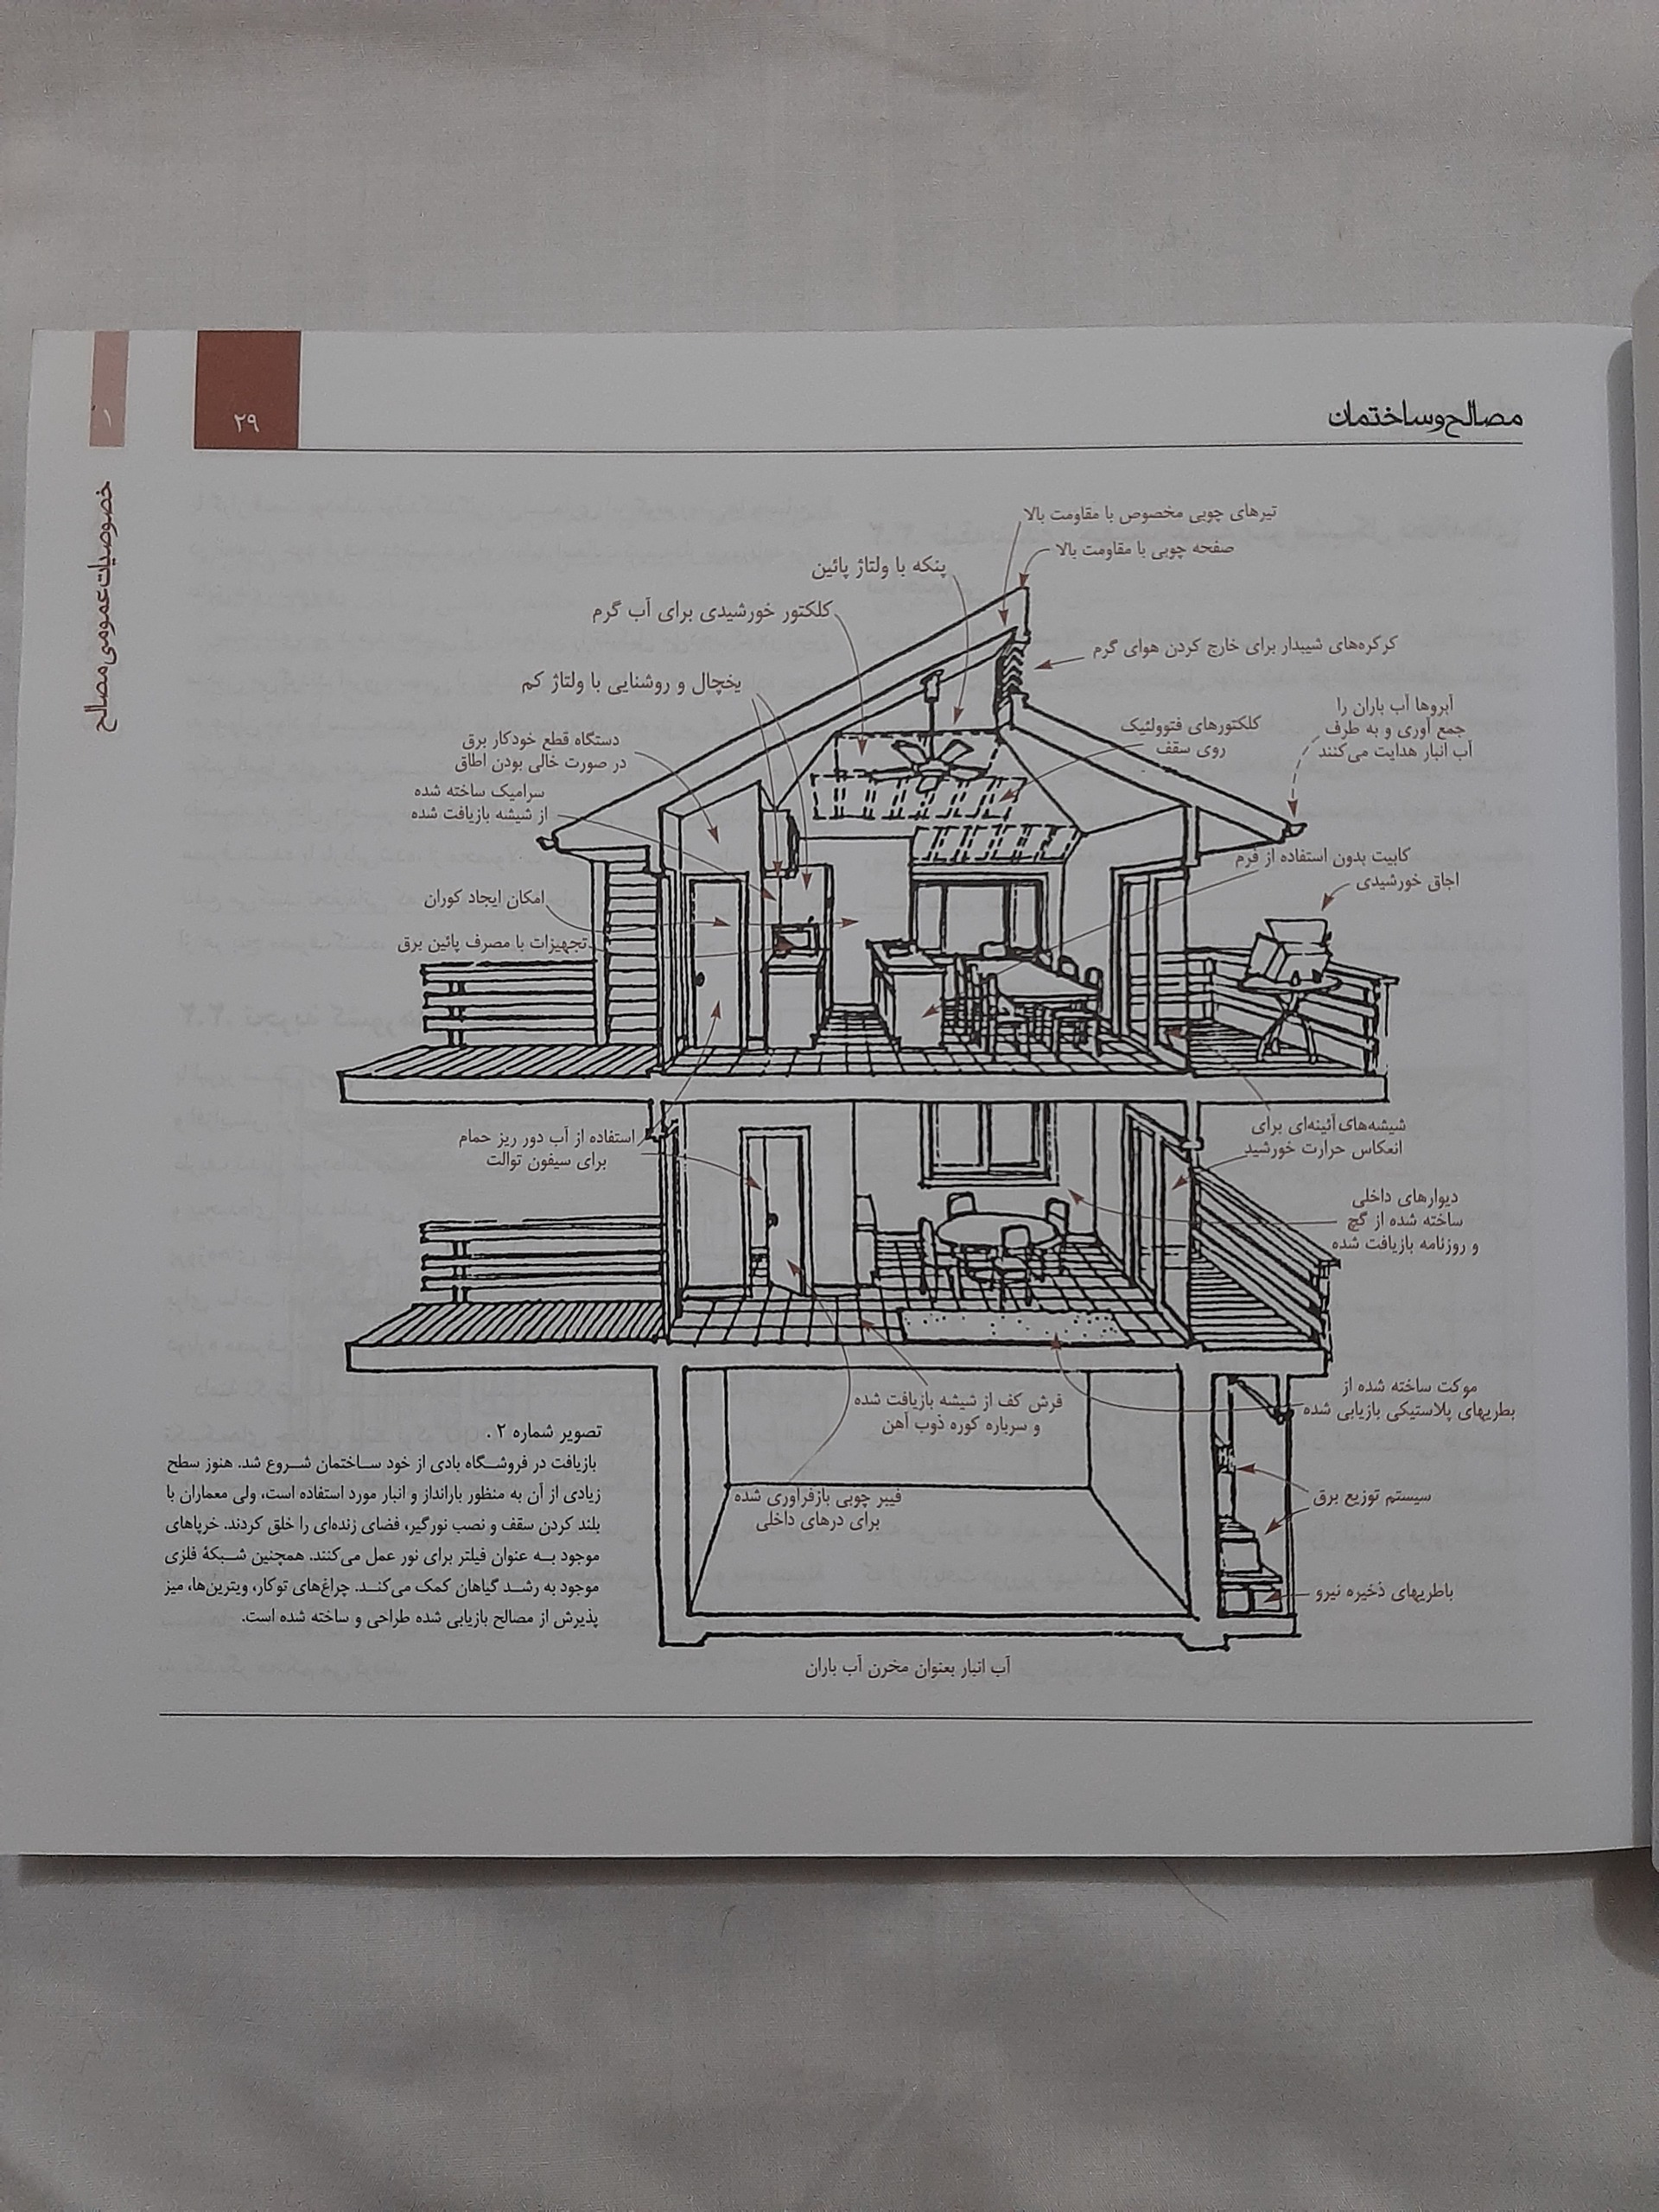 مصالح و ساختمان
۲۹
۱
خصوصیات عمومی مصالح
تیرهای چوبی مخصوص با مقاومت بالا
صفحه چوبی با مقاومت بالا
پنکه با ولتاژ پائین
کلکتور خورشیدی برای آب گرم
کرکره‌های شیبدار برای خارج کردن هوای گرم
یخچال و روشنایی با ولتاژ کم
آبروها آب باران را
جمع آوری و به طرف
آب انبار هدایت می‌کنند
کلکتورهای فتوولتیک
روی سقف
دستگاه قطع خودکار برق
در صورت خالی بودن اطاق
سرامیک ساخته شده
از شیشه بازیافت شده
کابیت بدون استفاده از فرم
اجاق خورشیدی
امکان ایجاد کوران
تجهیزات با مصرف پائین برق
شیشه‌های آئینه‌ای برای
انعکاس حرارت خورشید
استفاده از آب دور ریز حمام
برای سیفون توالت
دیوارهای داخلی
ساخته شده از گچ
و روزنامه بازیافت شده
موکت ساخته شده از
بطریهای پلاستیکی بازیابی شده
فرش کف از شیشه بازیافت شده
و سرباره کوره ذوب آهن
فیبر چوبی بازفرآوری شده
برای درهای داخلی
سیستم توزیع برق
باطریهای ذخیره نیرو
آب انبار بعنوان مخرن آب باران
تصویر شماره ۲ .
بازیافت در فروشگاه بادی از خود ساختمان شروع شد. هنوز سطح
زیادی از آن به منظور بارانداز و انبار مورد استفاده است، ولی معماران با
بلند کردن سقف و نصب نورگیر، فضای زنده‌ای را خلق کردند. خرپاهای
موجود به عنوان فیلتر برای نور عمل می‌کنند. همچنین شبکهٔ فلزی
موجود به رشد گیاهان کمک می‌کند. چراغ‌های توکار، ویترین‌ها، میز
پذیرش از مصالح بازیابی شده طراحی و ساخته شده است.